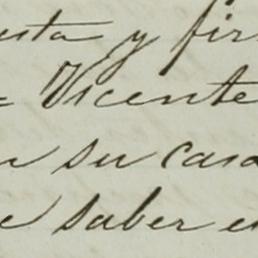 y fir
Vicente
su casa
saber